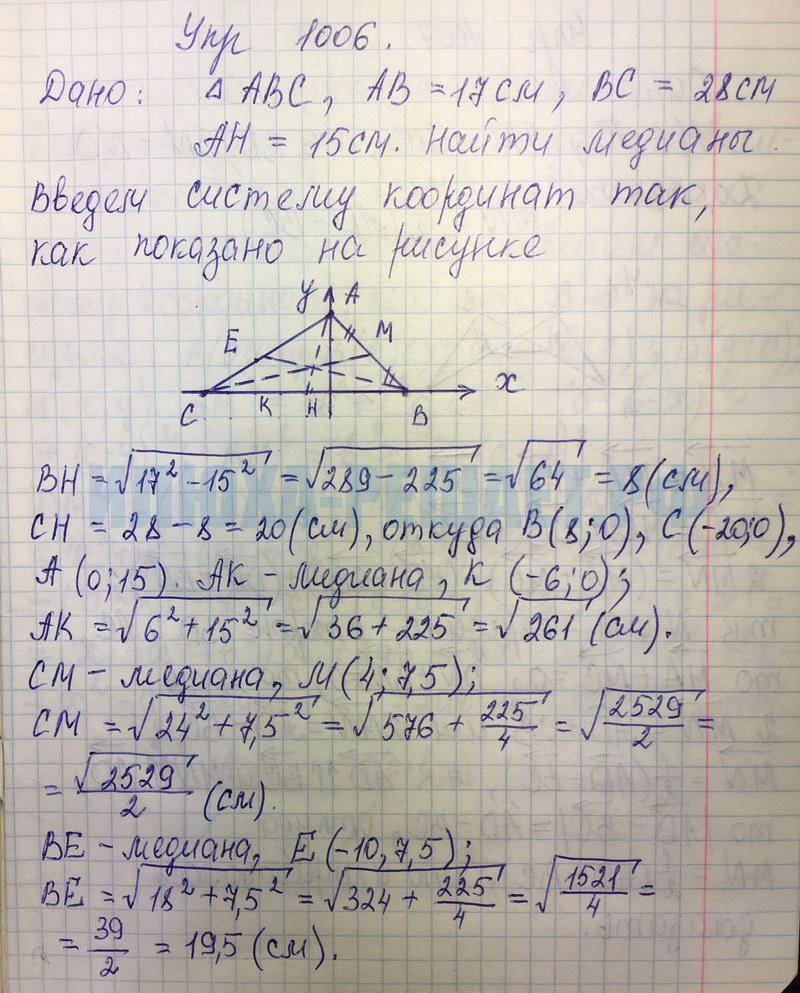 Упр 1006.
Дано: △ ABC, AB = 17см, BC = 28см
AH = 15см. найти медианы.
Введем систему координат так,
как показано на рисунке
y A
E M
x
C K H B
BH = √(17² - 15²) = √(289 - 225) = √64 = 8(см),
CH = 28 - 8 = 20(см), откуда B(8;0), C(-20;0),
A (0;15). AK - медиана, K (-6;0);
AK = √(6² + 15²) = √(36 + 225) = √261 (см).
CM - медиана, M(4;7,5);
CM = √(24² + 7,5²) = √(576 + 225/4) = √(2529/2) =
= √2529/2 (см).
BE - медиана, E(-10,7,5);
BE = √(18² + 7,5²) = √(324 + 225/4) = √(1521/4) =
= 39/2 = 19,5 (см).